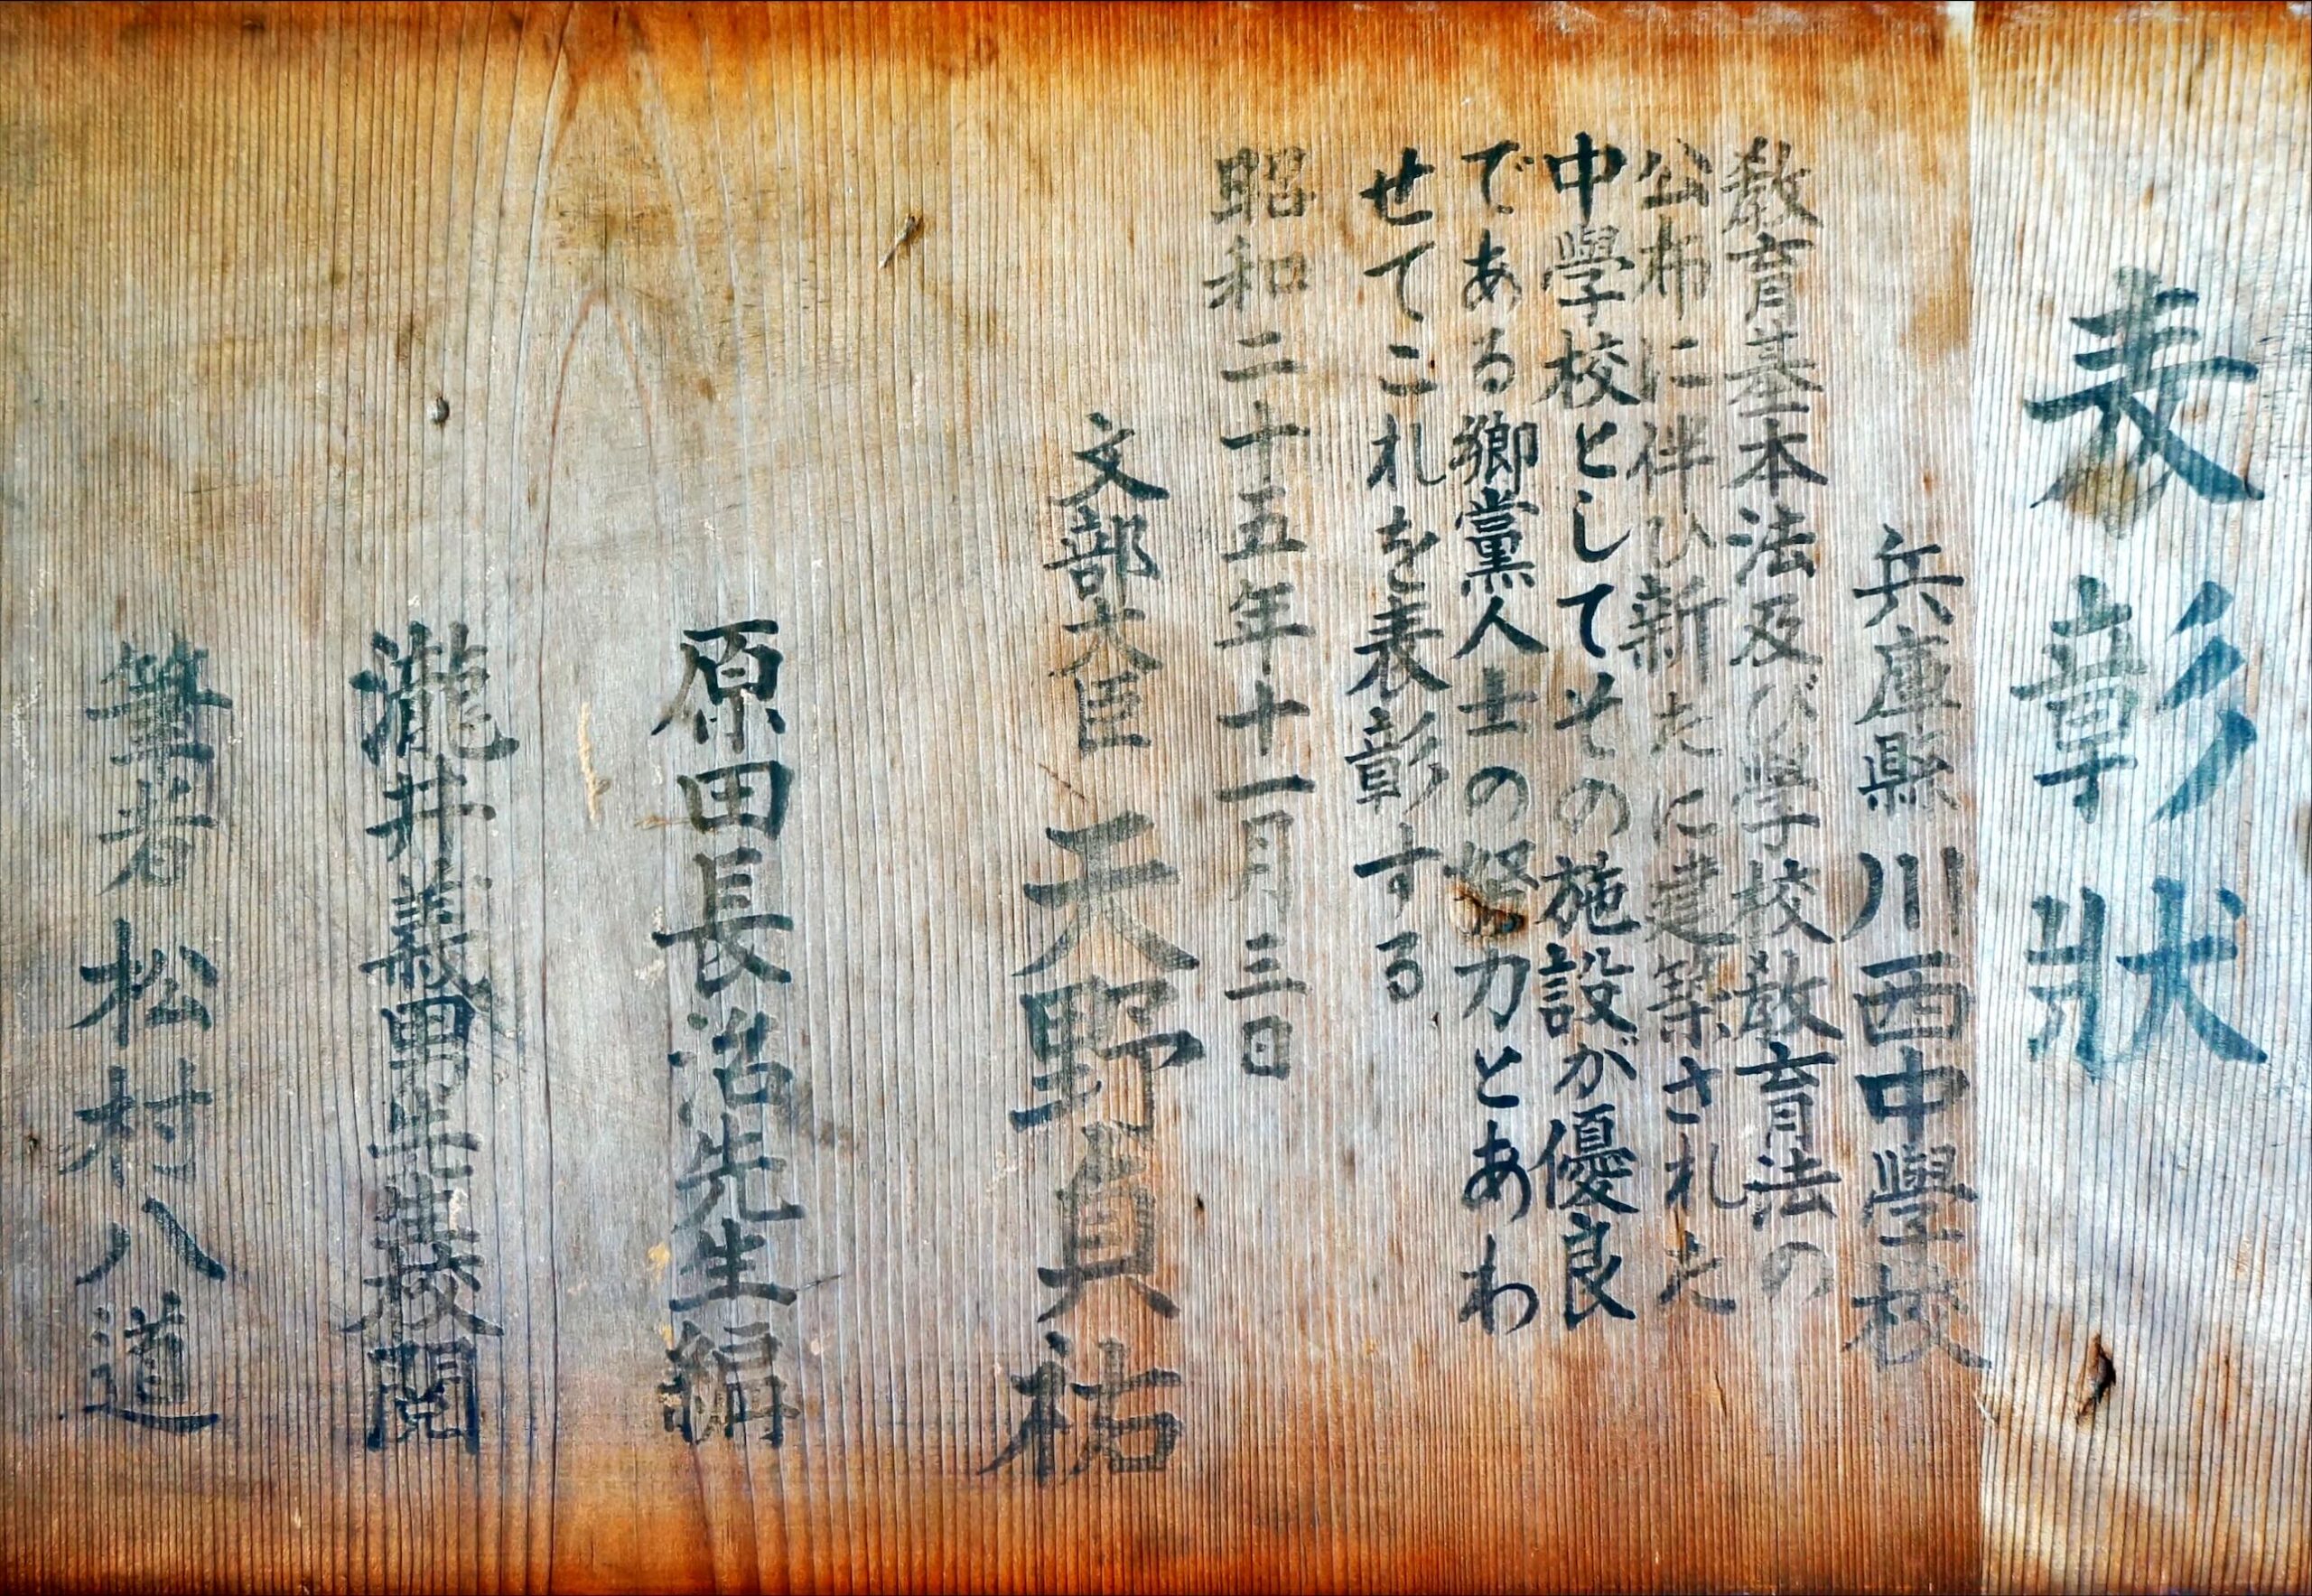 表彰狀
兵庫縣川西中學校
教育基本法及び学校教育法の
公布に伴ひ新たに建築された
中學校としてその施設が優良
である郷黨人士の努力とあわ
せてこれを表彰する
昭和二十五年十一月三日
文部大臣 天野貞祐
原田長治先生編
瀧井義男先生校閲
筆者 松村八道